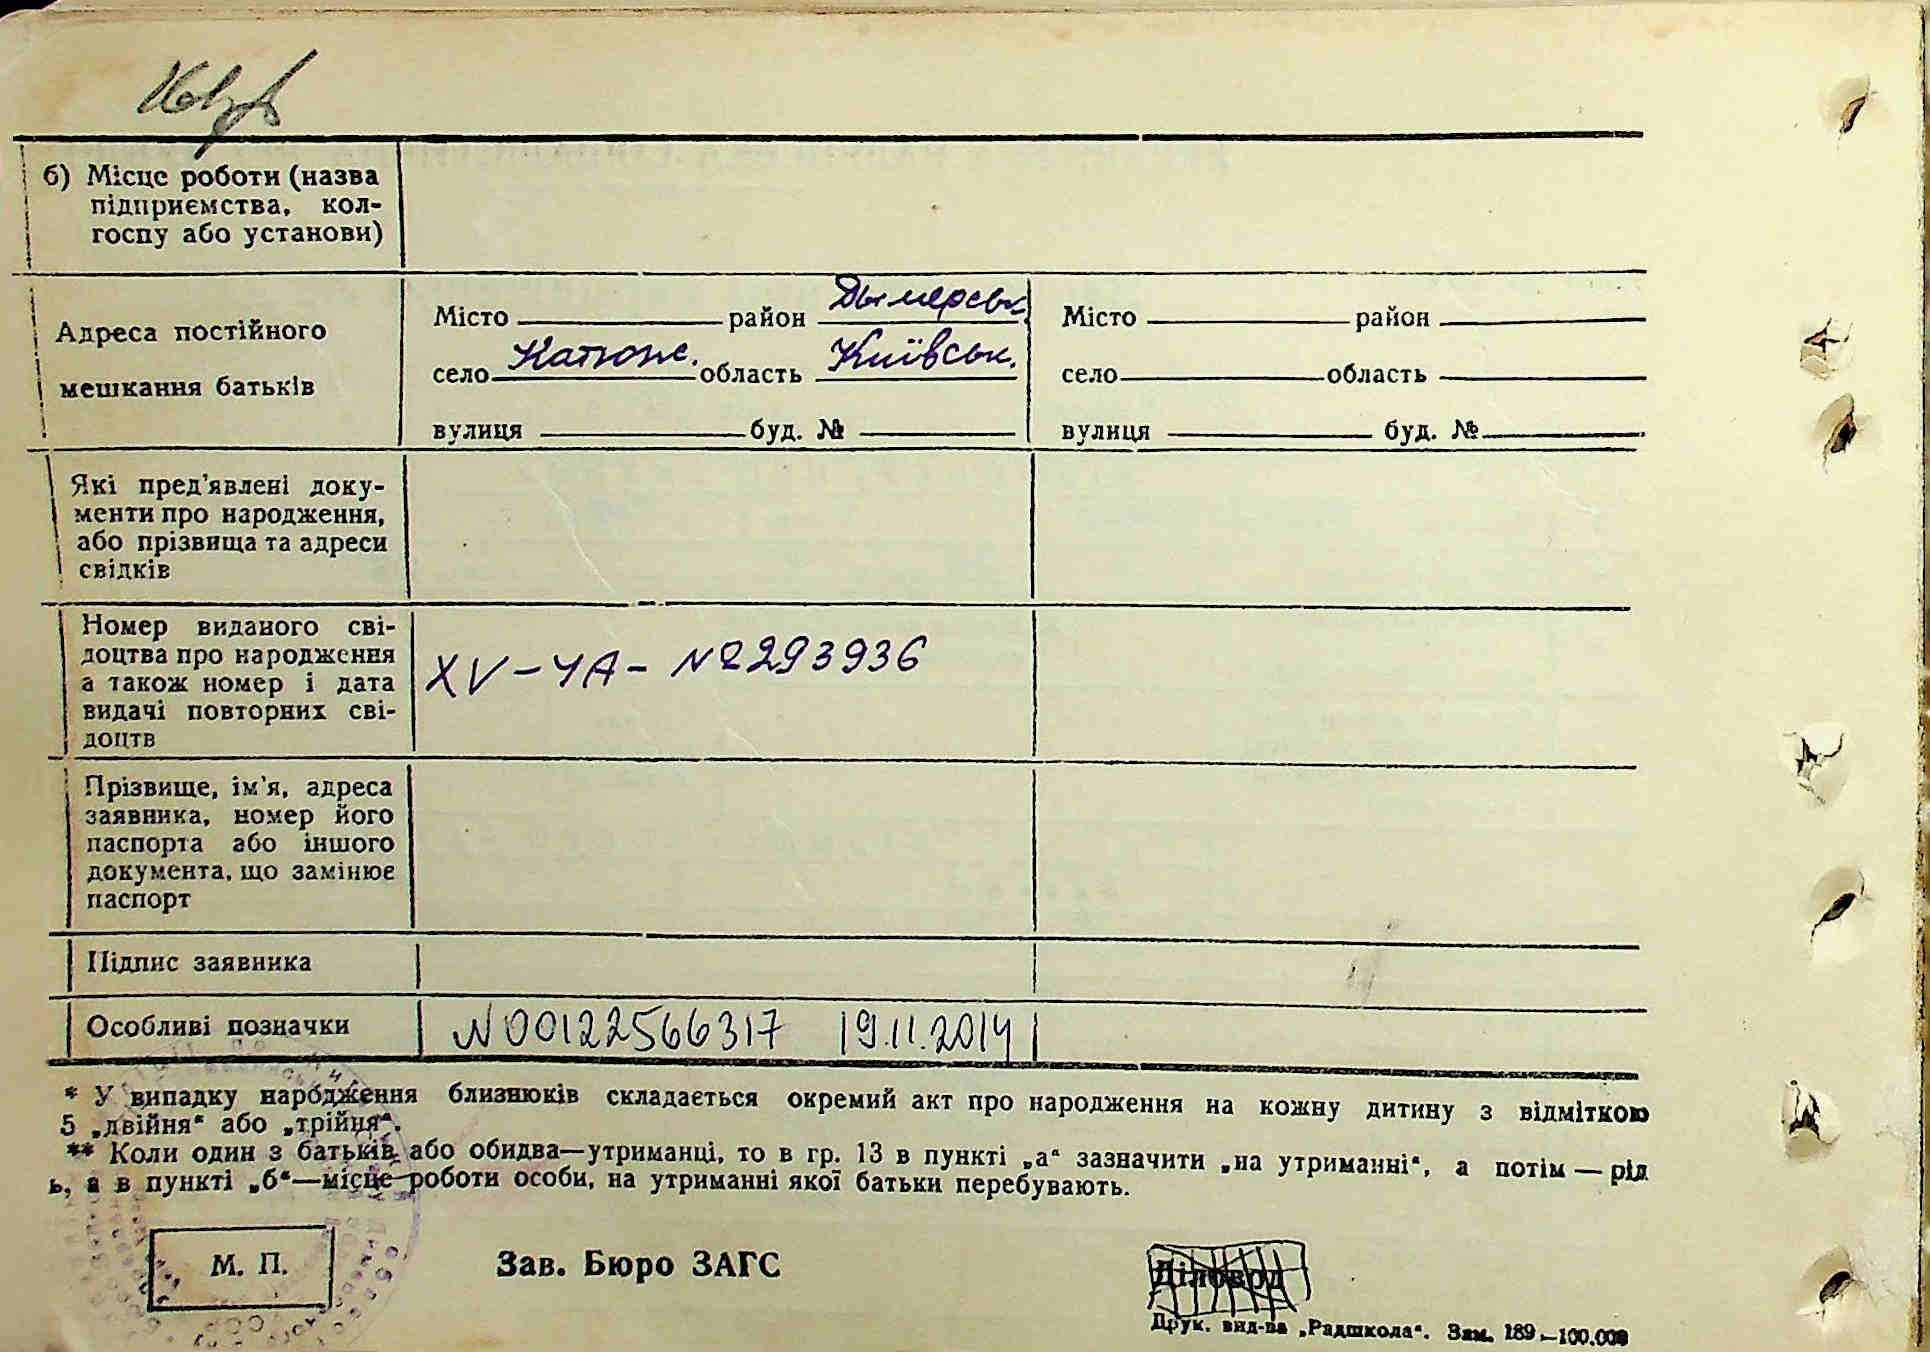 б) Місце роботи (назва
підприємства, кол-
госпу або установи)
Адреса постійного
мешкання батьків
Місто район Дымерськ
село Катюж. область Київськ.
вулиця буд. №
Місто район
село область
вулиця буд. №
Які пред'явлені доку-
менти про народження,
або прізвища та адреси
свідків
Номер виданого сві-
доцтва про народження
а також номер і дата
видачі повторних сві-
доцтв
XV-ЧА-№293936
Прізвище, ім'я, адреса
заявника, номер його
паспорта або іншого
документа, що замінює
паспорт
Підпис заявника
Особливі позначки
N00122566317 19.11.2014
* У випадку народження близнюків складається окремий акт про народження на кожну дитину з відміткою
5 „двійня“ або „трійня“.
** Коли один з батьків або обидва—утриманці, то в гр. 13 в пункті „а“ зазначити „на утриманні“, а потім — рід
ь, а в пункті „б“—місце роботи особи, на утриманні якої батьки перебувають.
М. П.
Зав. Бюро ЗАГС
Діловод
Друк. вид-ва „Радшкола“. Зам. 189—100.000